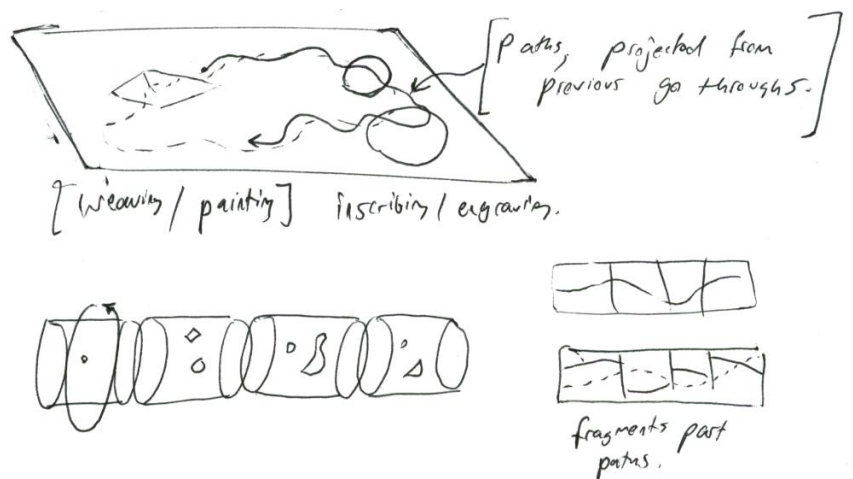 [Paths, projected from
previous go throughs.]
[weaving / painting] inscribing / engraving.
fragments past
paths.